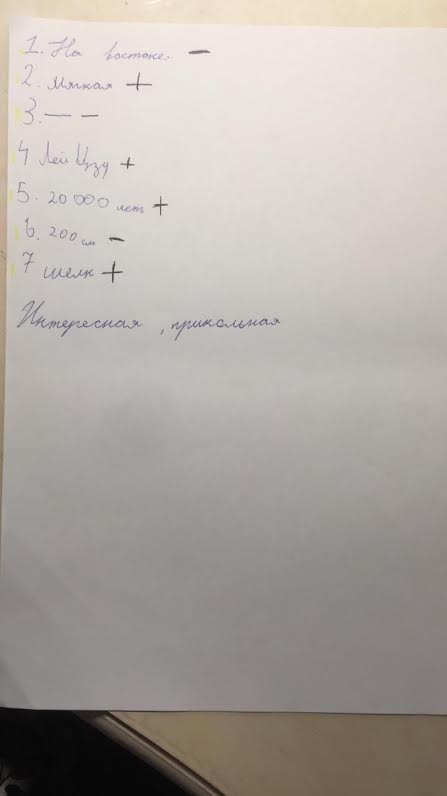 1. На востоке. —
2. мягкая +
3. — —
4 Лей Цзу +
5. 20 000 лет +
6. 200 см —
7 шелк +
Интересная, прикольная